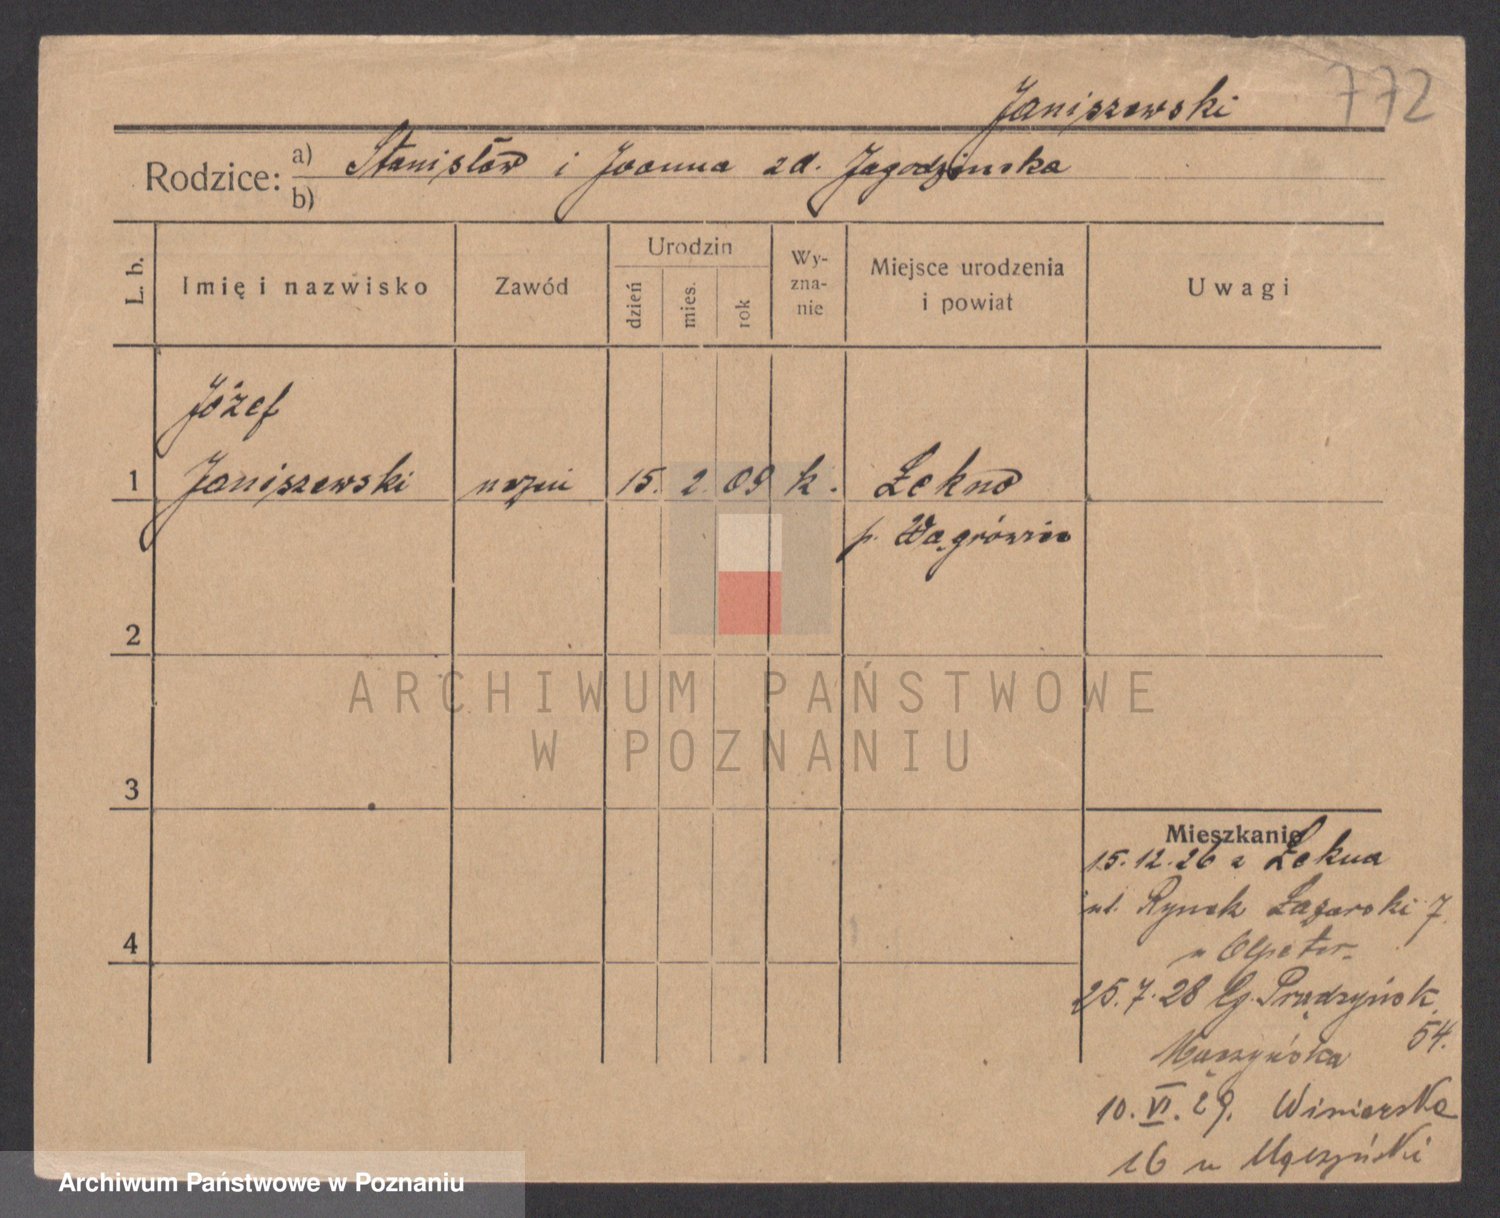 772
Janiszewski
Rodzice: a) Stanisław i Joanna zd. Jagodzinska
b)
L. b. Imię i nazwisko Zawód Urodzin dzień mies. rok Wy-zna-nie Miejsce urodzenia i powiat Uwagi
Józef
1 Janiszewski uczeń 15. 2. 09 k. Łekno
p. Wągrówiec
2
ARCHIWUM PAŃSTWOWE
W POZNANIU
3
Mieszkanie
15.12.26 z Łekna
ul. Rynek Łazarski 7
u
4
25.7.28 Prądzyńsk.
54.
10.VI.29. Winiarska
16 u Mączyński
Archiwum Państwowe w Poznaniu